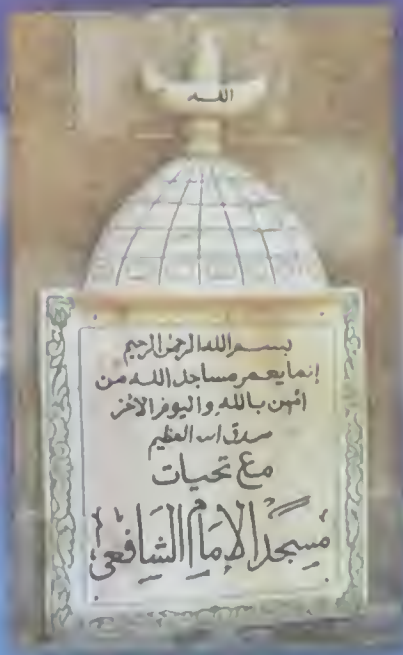 الله
بسم الله الرحمن الرحيم
إنما يعمر مساجد الله من
آمن بالله واليوم الآخر
صدق الله العظيم
مع تحيات
مسجد الإمام الشافعي